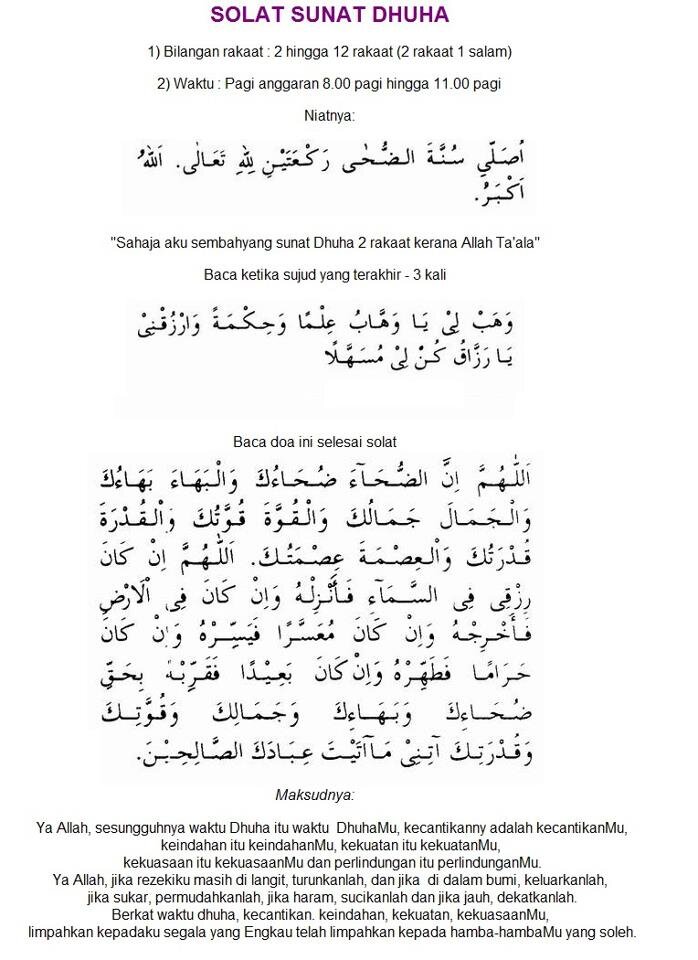 SOLAT SUNAT DHUHA
1) Bilangan rakaat : 2 hingga 12 rakaat (2 rakaat 1 salam)
2) Waktu : Pagi anggaran 8.00 pagi hingga 11.00 pagi
Niatnya:
اُصَلِّي سُنَّةَ الضُّحٰى رَكْعَتَيْنِ لِلّٰهِ تَعَالٰى. اَللّٰهُ
اَكْبَرُ.
"Sahaja aku sembahyang sunat Dhuha 2 rakaat kerana Allah Ta'ala"
Baca ketika sujud yang terakhir - 3 kali
وَهَبْ لِيْ يَا وَهَّابُ عِلْمًا وَحِكْمَةً وَارْزُقْنِيْ
يَا رَزَّاقُ كُنْ لِيْ مُسَهِّلًا
Baca doa ini selesai solat
اَللّٰهُمَّ اِنَّ الضُّحَآءَ ضُحَاءُكَ وَالْبَهَاءَ بَهَاءُكَ
وَالْجَمَالَ جَمَالُكَ وَالْقُوَّةَ قُوَّتُكَ وَالْقُدْرَةَ
قُدْرَتُكَ وَالْعِصْمَةَ عِصْمَتُكَ. اَللّٰهُمَّ اِنْ كَانَ
رِزْقِى فِى السَّمَآءِ فَأَنْزِلْهُ وَاِنْ كَانَ فِى اْلَارْضِ
فَأَخْرِجْهُ وَاِنْ كَانَ مُعَسَّرًا فَيَسِّرْهُ وَاِنْ كَانَ
حَرَامًا فَطَهِّرْهُ وَاِنْ كَانَ بَعِيْدًا فَقَرِّبْهُ بِحَقِّ
ضُحَاءِكَ وَبَهَاءِكَ وَجَمَالِكَ وَقُوَّتِكَ
وَقُدْرَتِكَ آتِنِىْ مَآاَتَيْتَ عِبَادَكَ الصَّالِحِيْنَ.
Maksudnya:
Ya Allah, sesungguhnya waktu Dhuha itu waktu DhuhaMu, kecantikanny adalah kecantikanMu,
keindahan itu keindahanMu, kekuatan itu kekuatanMu,
kekuasaan itu kekuasaanMu dan perlindungan itu perlindunganMu.
Ya Allah, jika rezekiku masih di langit, turunkanlah, dan jika di dalam bumi, keluarkanlah,
jika sukar, permudahkanlah, jika haram, sucikanlah dan jika jauh, dekatkanlah.
Berkat waktu dhuha, kecantikan. keindahan, kekuatan, kekuasaanMu,
limpahkan kepadaku segala yang Engkau telah limpahkan kepada hamba-hambaMu yang soleh.